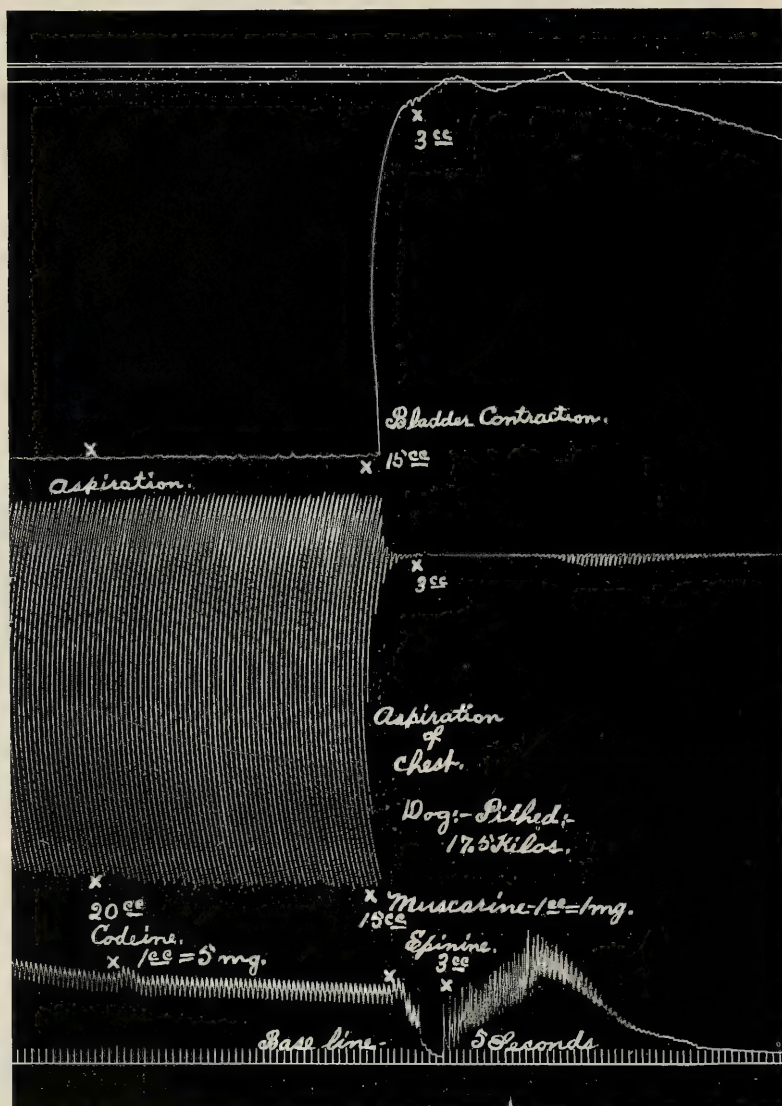 x
3 cc
Bladder Contraction.
x
x 15 cc
Aspiration.
x
3 cc
Aspiration
of
Chest.
Dog:- Pithed:-
17.5 Kilos.
x
20 cc
Codeine.
x 1cc = 5 mg.
x
15 cc
Muscarine - 1cc = 1mg.
Epinine.
3 cc
x
x
Base line -
5 Seconds